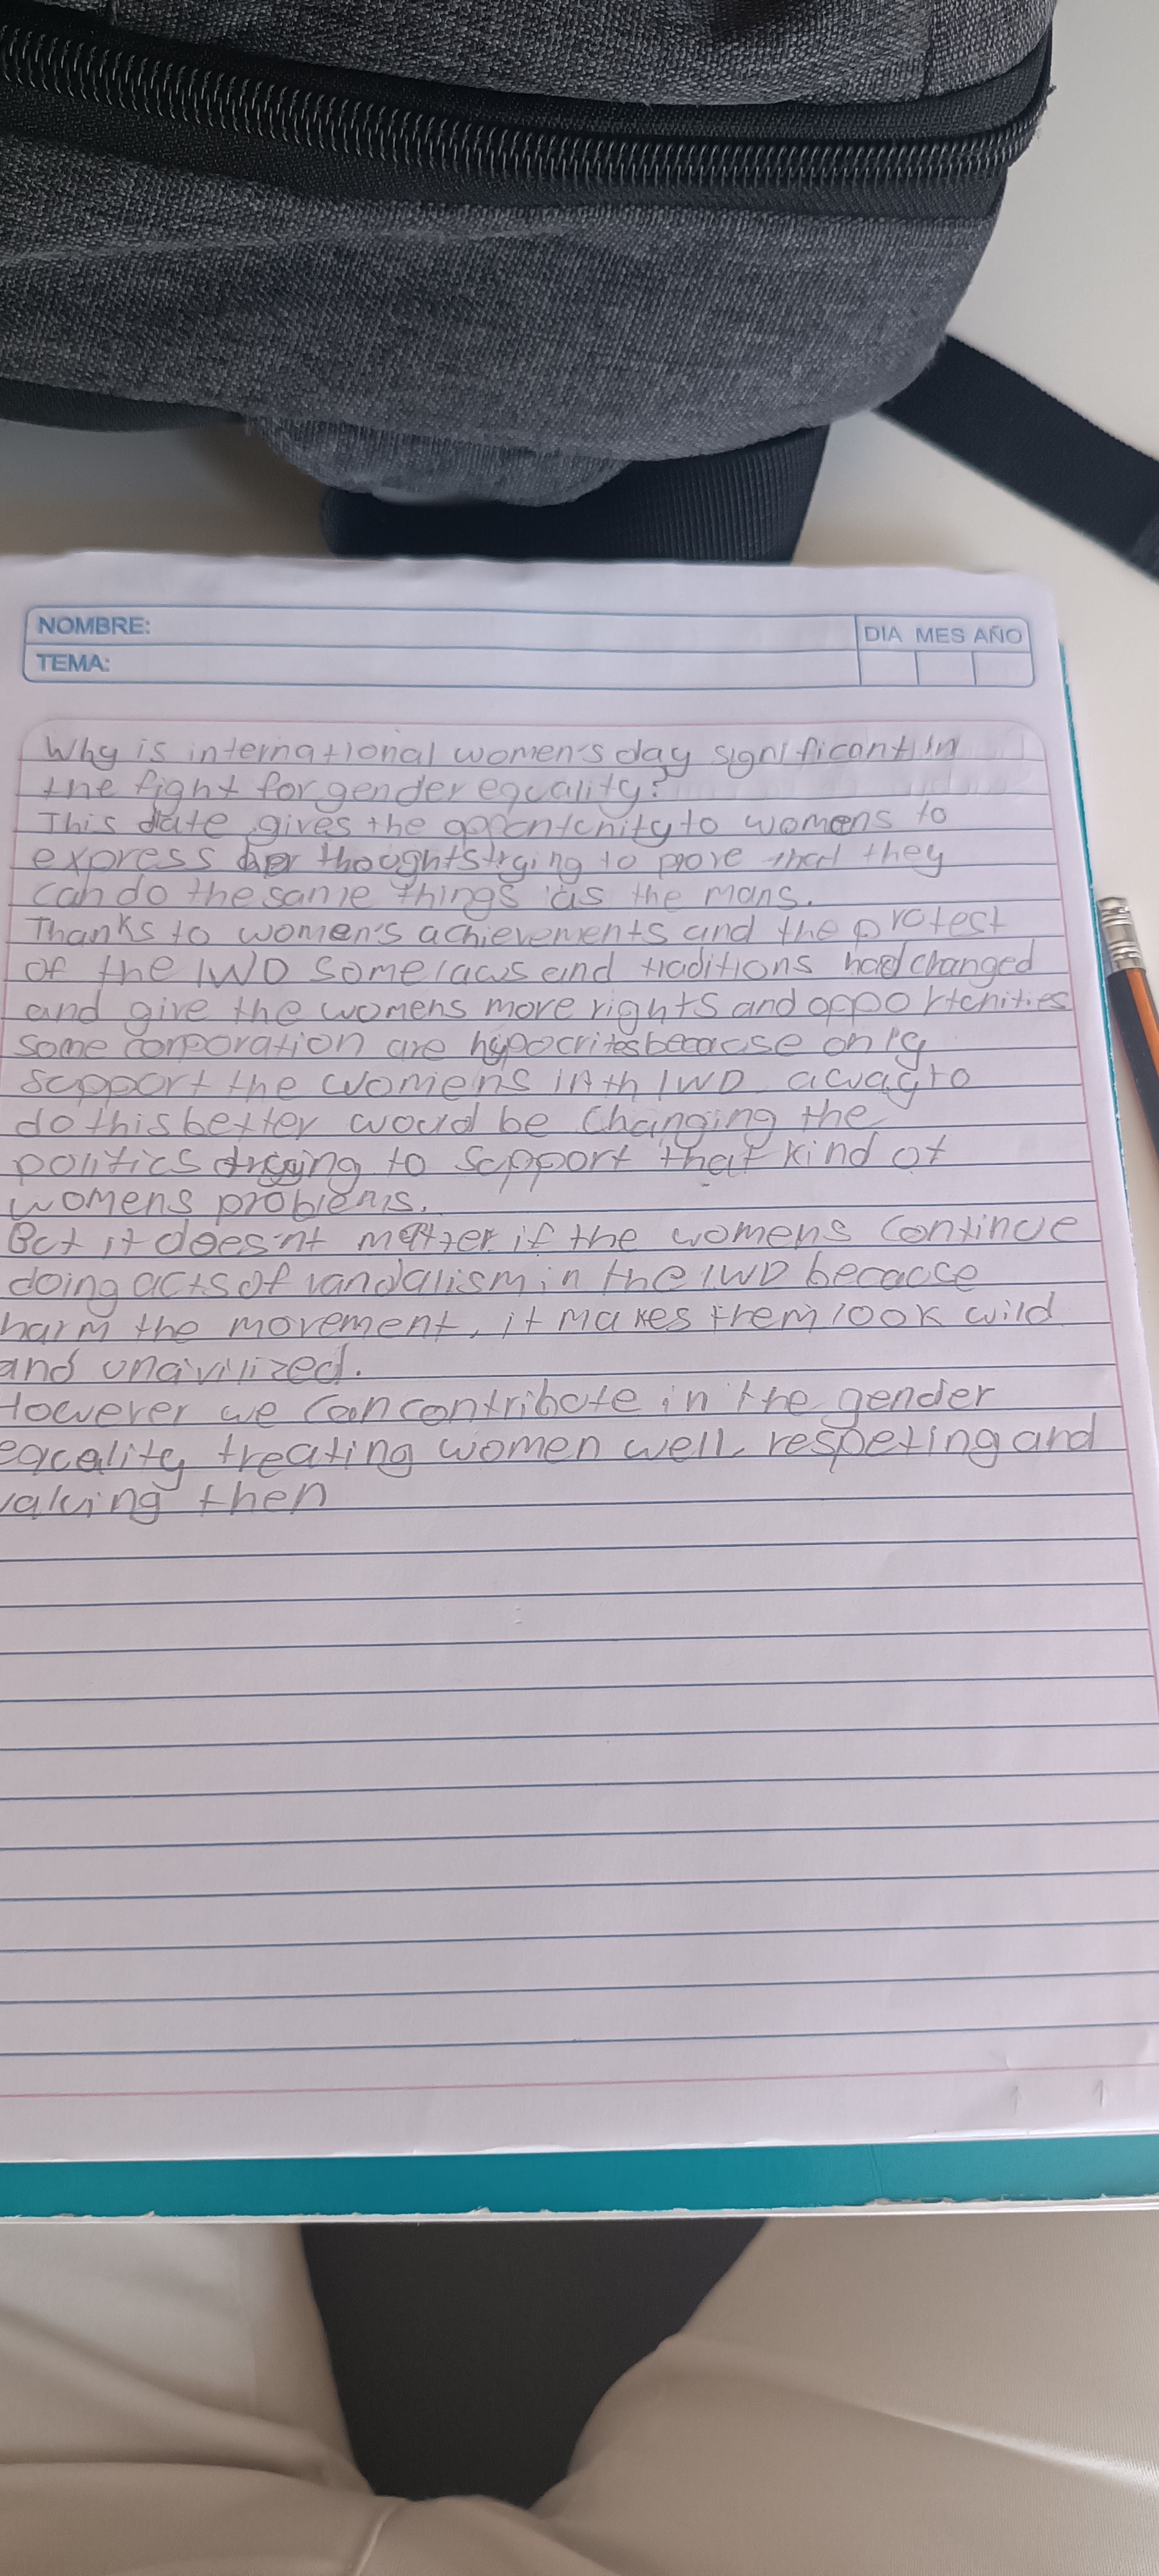 NOMBRE:
DIA MES AÑO
TEMA:
Why is international women's day significant in
the fight for gender equality?
This date gives the opportunity to womens to
express her thoughts trying to prove that they
can do the same things as the mans.
Thanks to women's achievements and the protest
of the IWD some laws and traditions had changed
and give the womens more rights and opportunities
Some corporation are hypocrites because only
support the womens in th IWD a way to
do this better would be changing the
politics trying to support that kind of
womens problems.
But it does'nt matter if the womens continue
doing acts of vandalism in the IWD because
harm the movement, it makes them look wild
and
However we can contribute in the gender
equality treating women well, respeting and
valuing then